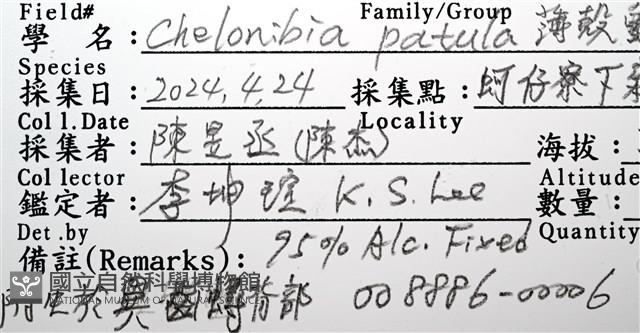 Field# Family/Group
學 名: Chelonibia patula 薄殼
Species
採集日: 2024.4.24 採集點: 蚵仔寮下
Coll.Date Locality
採集者: 陳昱丞(陳杰) 海拔:
Collector Altitude
鑑定者: 李坤瑄 K.S.Lee 數量:
Det.by Quantity
備註(Remarks): 95% Alc. Fixed
國立自然科學博物館
NATIONAL MUSEUM OF NATURAL SCIENCE
背部 008886-00006